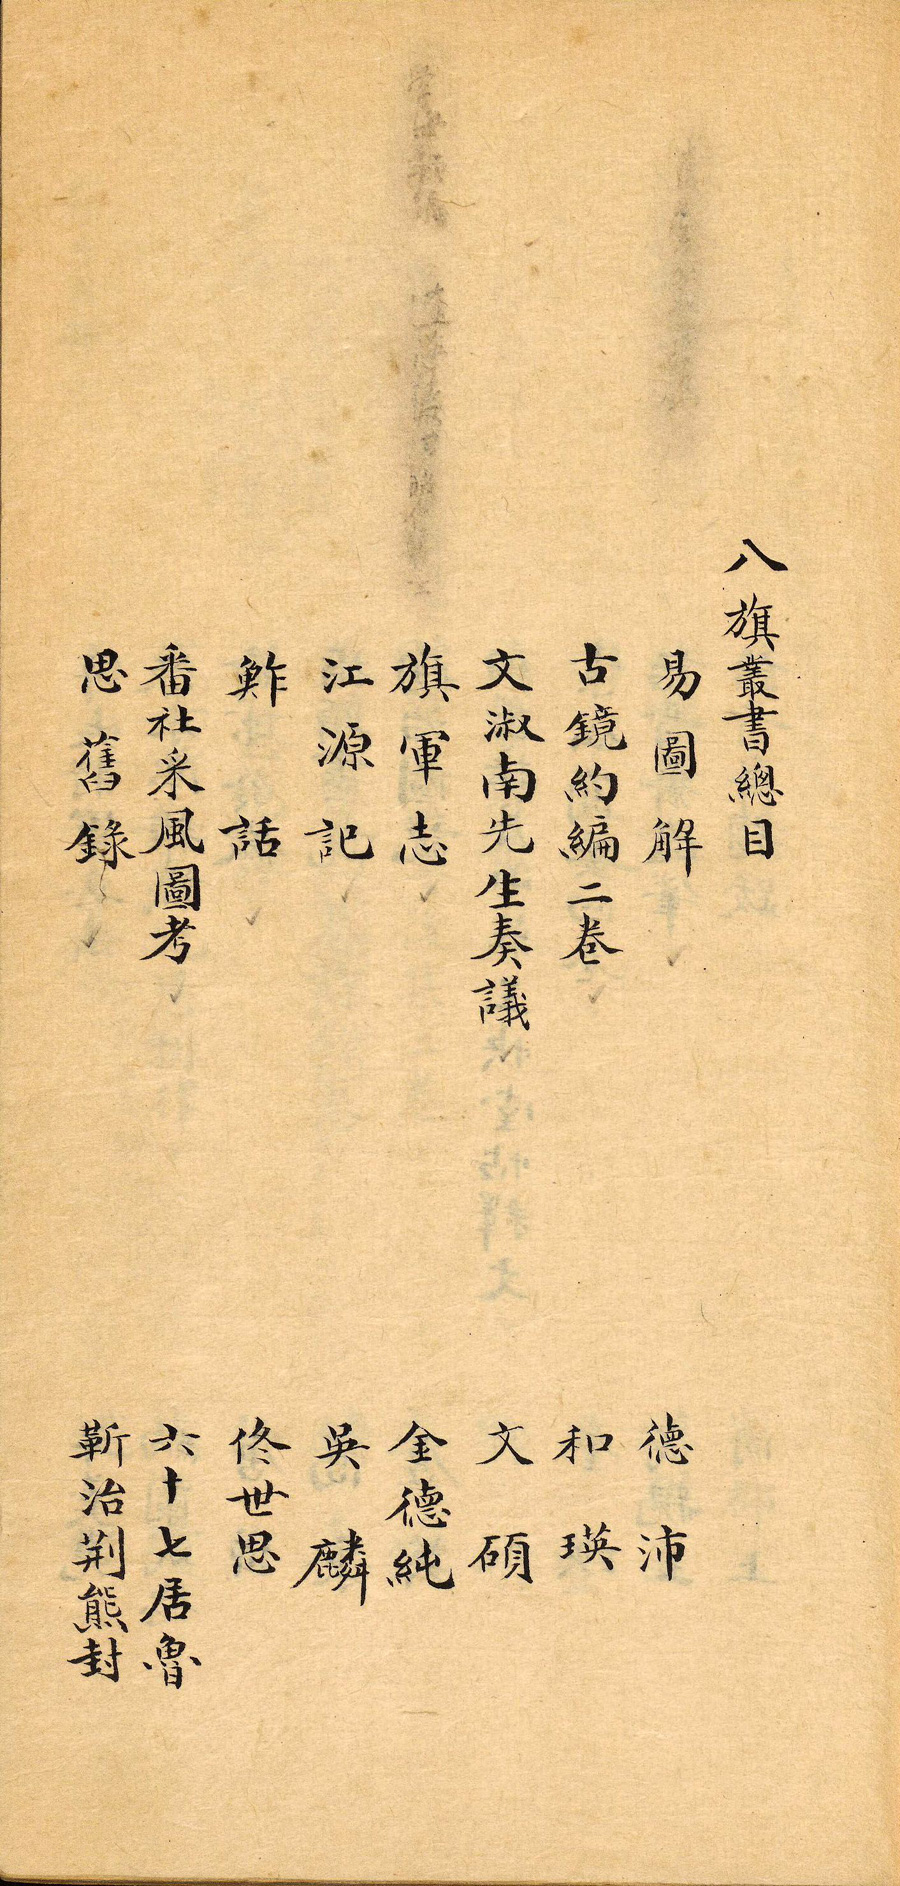 八旗叢書總目
易圖解 德沛
古鏡約編二卷 和瑛
文淑南先生奏議 文碩
旗軍志 金德純
江源記 吳麟
鮓話 佟世思
番社采風圖考 六十七居魯
思舊錄 靳治荆熊封